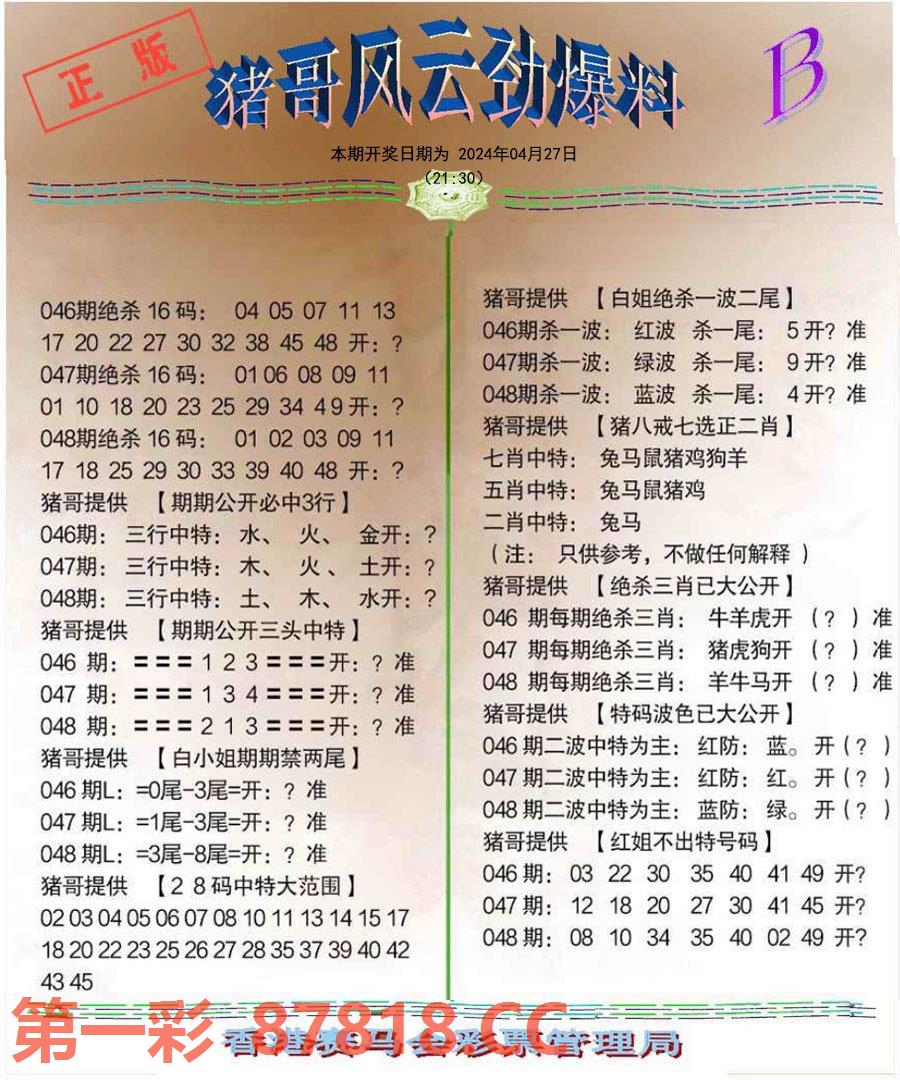 正版
猪哥风云劲爆料
B
本期开奖日期为 2024年04月27日
(21:30)
046期绝杀 16 码： 04 05 07 11 13
17 20 22 27 30 32 38 45 48 开：?
047期绝杀 16 码： 01 06 08 09 11
01 10 18 20 23 25 29 34 4 9 开：?
048期绝杀 16 码： 01 02 03 09 11
17 18 25 29 30 33 39 40 48 开：?
猪哥提供 【期期公开必中3行】
046期： 三行中特： 水、 火、 金开：?
047期： 三行中特： 木、 火、 土开：?
048期： 三行中特： 土、 木、 水开：?
猪哥提供 【期期公开三头中特】
046 期：===1 2 3===开：? 准
047 期：===1 3 4===开：? 准
048 期：===2 1 3===开：? 准
猪哥提供 【白小姐期期禁两尾】
046 期L：=0尾-3尾=开：? 准
047 期L：=1尾-3尾=开：? 准
048 期L：=3尾-8尾=开：? 准
猪哥提供 【2 8 码中特大范围】
02 03 04 05 06 07 08 10 11 13 14 15 17
18 20 22 23 25 26 27 28 35 37 39 40 42
43 45
猪哥提供 【白姐绝杀一波二尾】
046期杀一波： 红波 杀一尾： 5 开? 准
047期杀一波： 绿波 杀一尾： 9 开? 准
048期杀一波： 蓝波 杀一尾： 4 开? 准
猪哥提供 【猪八戒七选正二肖】
七肖中特： 兔马鼠猪鸡狗羊
五肖中特： 兔马鼠猪鸡
二肖中特： 兔马
（注： 只供参考，不做任何解释 ）
猪哥提供 【绝杀三肖已大公开】
046 期每期绝杀三肖： 牛羊虎开 （? ）准
047 期每期绝杀三肖： 猪虎狗开 （? ）准
048 期每期绝杀三肖： 羊牛马开 （? ）准
猪哥提供 【特码波色已大公开】
046 期二波中特为主：红防：蓝。开（? ）
047 期二波中特为主：红防：红。开（? ）
048 期二波中特为主：蓝防：绿。开（? ）
猪哥提供 【红姐不出特号码】
046 期： 03 22 30 35 40 41 49 开?
047 期： 12 18 20 27 30 41 45 开?
048 期： 08 10 34 35 40 02 49 开?
第一彩 87818.CC
香港赛马会彩票管理局